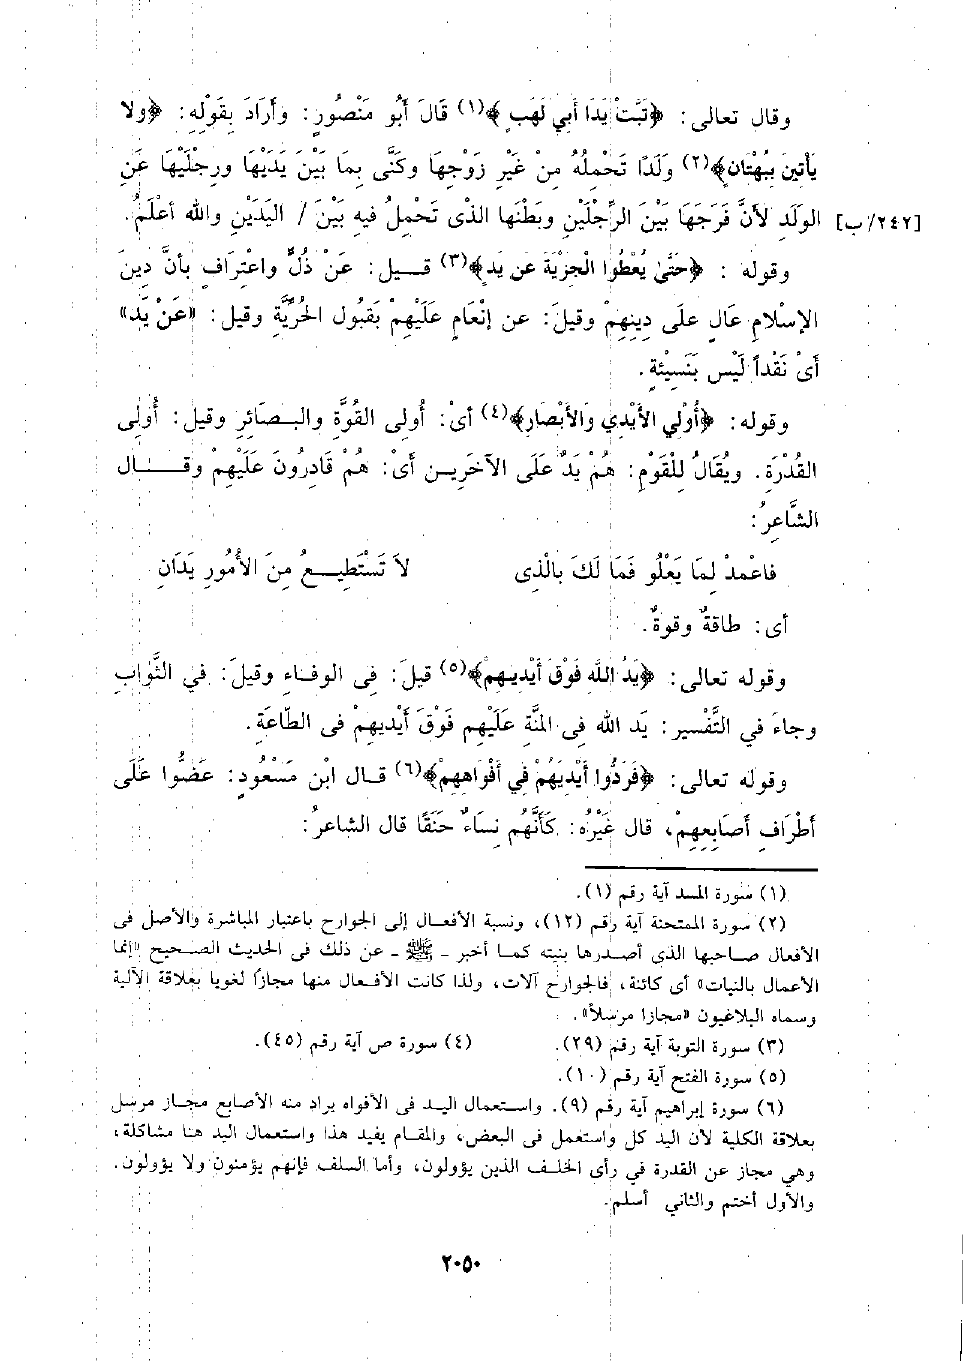 وقال تعالى: ﴿تَبَّتْ يَدَا أَبِي لَهَبٍ﴾(١) قَالَ أَبُو مَنْصُورٍ: وأَرَادَ بِقَوْلِهِ: ﴿ولا
يَأتِينَ بِبُهْتَانٍ﴾(٢) وَلَدًا تَحْمِلُهُ مِنْ غَيْرِ زَوْجِهَا وكَنَّى بِمَا بَيْنَ يَدَيْهَا ورِجْلَيْهَا عَنِ
الوَلَدِ لأَنَّ فَرَجَهَا بَيْنَ الرِّجْلَيْنِ وبَطْنَها الذْى تَحْمِلُ فيهِ بَيْنَ / اليَدَيْنِ والله أعْلَمُ. [٢٤٢/ب]
وقوله : ﴿حَتَّىٰ يُعْطُوا الْجِزْيَةَ عَن يَدٍ﴾(٣) قـيل: عَنْ ذُلٍّ واعْتِرَافٍ بأنَّ دِينَ
الإسْلامِ عَالٍ علَى دِينِهِمْ وقيلَ: عن إنْعَامٍ عَلَيْهِمْ بِقَبُول الجِزْيَةِ وقيل: «عَنْ يَدٍ»
أىْ نَقْداً لَيْس بِنَسِيْئَةٍ.
وقوله: ﴿أُوْلِي الأَيْدِي وَالأَبْصَارِ﴾(٤) أىْ: أُولى القُوَّةِ والبـصَائِرِ وقيل: أُولِى
القُدْرَةِ. ويُقَالُ لِلْقَوْمِ: هُمْ يَدٌ عَلَى الآخَرِيـن أىْ: هُمْ قَادِرُونَ عَلَيْهِمْ وقـــال
الشَّاعرُ:
فاعْمدْ لِمَا يَعْلُو فَمَا لَكَ بالْذى لاَ تَسْتَطِيـــعُ مِنَ الأُمُورِ يَدَانِ
أى: طاقةٌ وقوةٌ.
وقوله تعالى: ﴿يَدُ اللَّهِ فَوْقَ أَيْدِيهِمْ﴾(٥) قيلَ: فِى الوفـاءِ وقيلَ: فِي الثَّوابِ
وجاءَ في التَّفْسيرِ: يَد الله فِى المِنَّةِ عَلَيْهِم فَوْقَ أَيْدِيهِمْ فى الطَّاعَةِ.
وقوله تعالى: ﴿فَرَدُّوا أَيْدِيَهُمْ فِي أَفْوَاهِهِمْ﴾(٦) قـال ابْن مَسْعُودٍ: عَضُّوا عَلَى
أطْرَافِ أصَابِعِهِمْ، قال غَيْرُه: كَأَنَّهُم نِسَاءٌ حَنَقًا قال الشاعرُ:
(١) سورة المسد آية رقم (١).
(٢) سورة الممتحنة آية رقم (١٢)، ونسبة الأفعال إلى الجوارح باعتبار المباشرة والأصل فى
الأفعال صاحبها الذي أصـدرها بنيته كمـا أخبر ـ ﷺ ـ عن ذلك فى الحديث الصـحيح «إنما
الأعمال بالنيات» أى كائنة، فالجوارح آلات، ولذا كانت الأفـعال منها مجازًا لغويا بعلاقة الآلية
وسماه البلاغيون «مجازا مرسلاً».
(٣) سورة التوبة آية رقم (٢٩). (٤) سورة ص آية رقم (٤٥).
(٥) سورة الفتح آية رقم (١٠).
(٦) سورة إبراهيم آية رقم (٩). واستعمال اليـد فى الأفواه يراد منه الأصابع مجـاز مرسل
بعلاقة الكلية لأن اليد كل واستعمل فى البعض، والمقـام يفيد هذا واستعمال اليد هنا مشاكلة،
وهي مجاز عن القدرة في رأى الخلـف الذين يؤولون، وأما السلف فإنهم يؤمنون ولا يؤولون.
والأول أختم والثاني أسلم.
٢٠٥٠